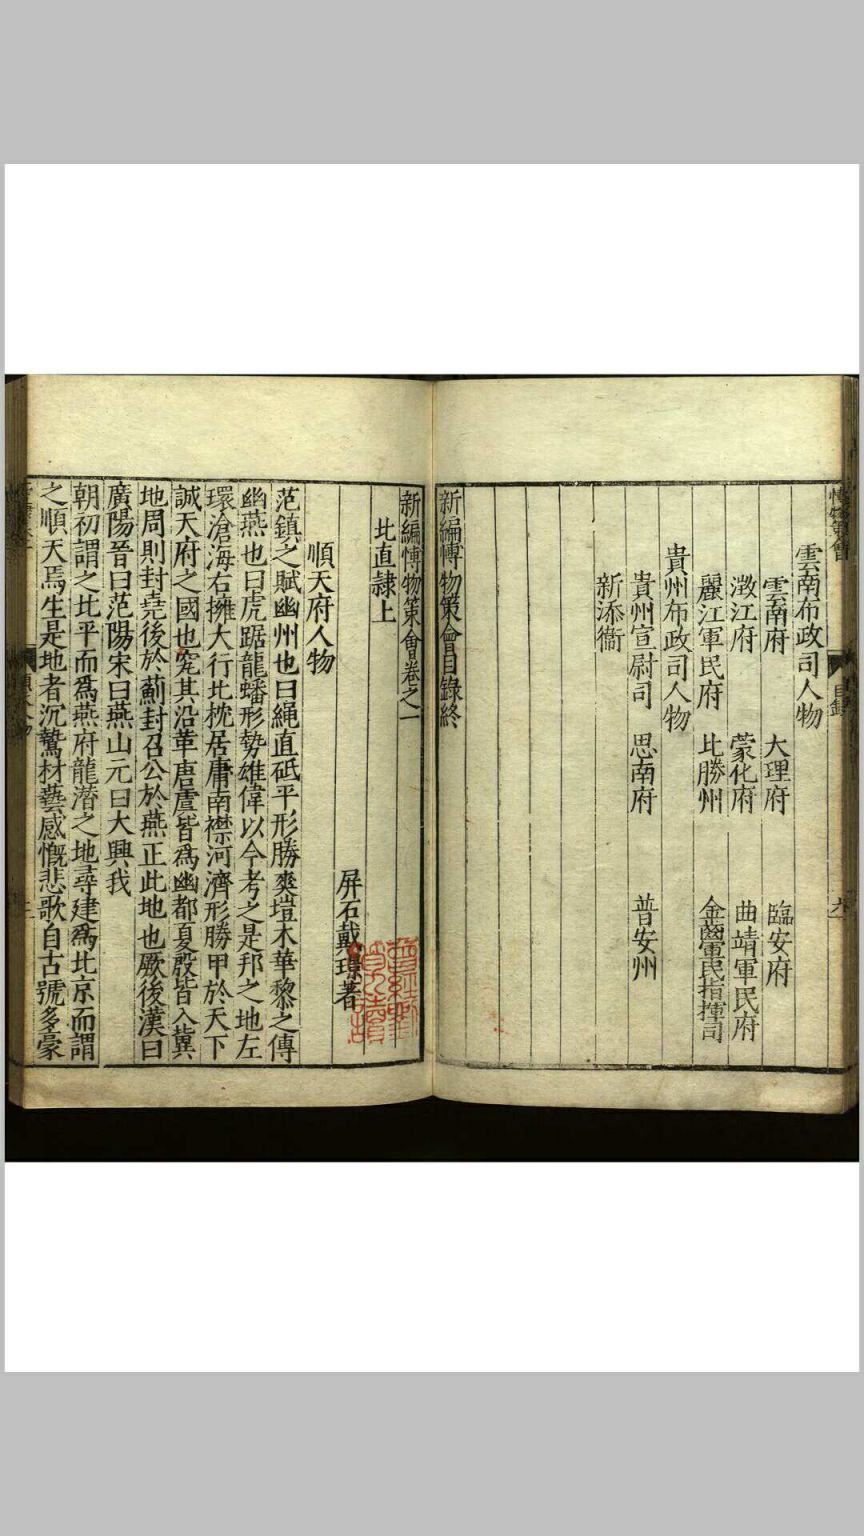 雲南布政司人物
雲南府 大理府 臨安府
澂江府 蒙化府 曲靖軍民府
麗江軍民府 北勝州 金齒軍民指揮司
貴州布政司人物
貴州宣尉司 思南府 普安州
新添衞
新編愽物策會目錄終
新編愽物策會卷之一
北直隷上
屏石戴璟著
順天府人物
范鎮之賦幽州也曰繩直砥平形勝爽塏木華黎之傳
幽燕也曰虎踞龍蟠形勢雄偉以今考之是邦之地左
環滄海右擁大行北枕居庸南襟河濟形勝甲於天下
誠天府之國也究其沿革唐虞皆爲幽都夏殷皆入冀
地周則封堯後於薊封召公於燕正此地也厥後漢曰
廣陽晉曰范陽宋曰燕山元曰大興我
朝初謂之北平而爲燕府龍潛之地尋建爲北京而謂
之順天焉生是地者沉鷙材藝感慨悲歌自古號多豪